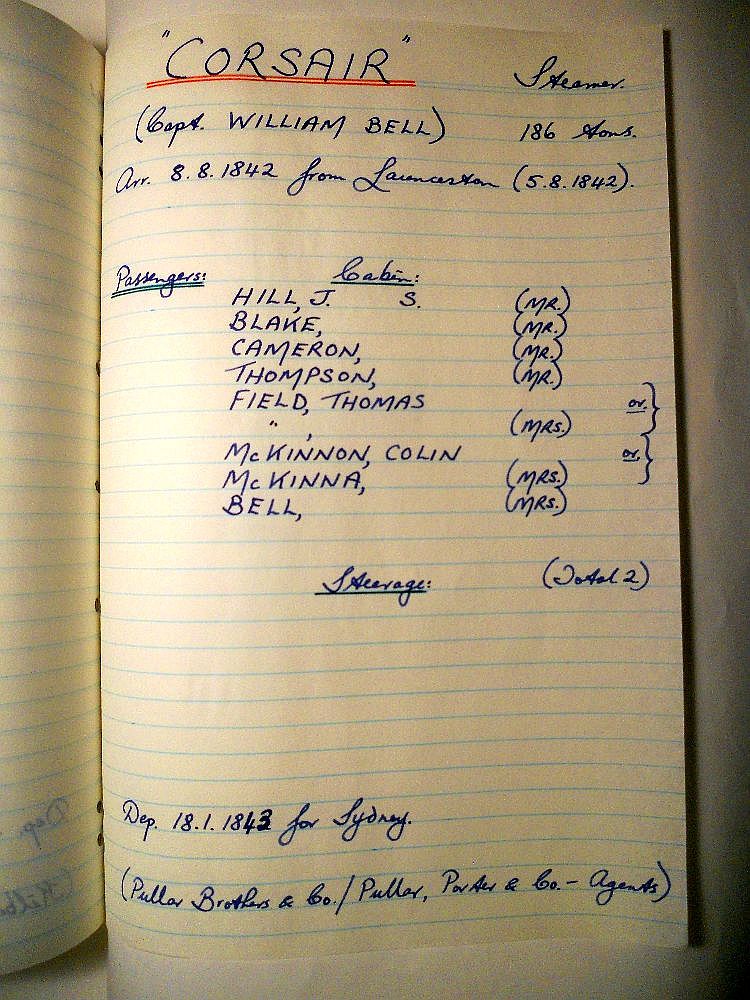 "CORSAIR"
Steamer.
(Capt. WILLIAM BELL) 186 tons.
Arr. 8.8.1842 from Launceston (5.8.1842).
Passengers: Cabin:
HILL, J. S. (MR.)
BLAKE, (MR.)
CAMERON, (MR.)
THOMPSON, (MR.)
FIELD, THOMAS or. }
" , (MRS.)
McKINNON, COLIN or. }
McKINNA, (MRS.)
BELL, (MRS.)
Steerage: (Total 2)
Dep. 18.1.1843 for Sydney.
(Pullar Brothers & Co./Pullar, Porter & Co. - Agents)
Dep.